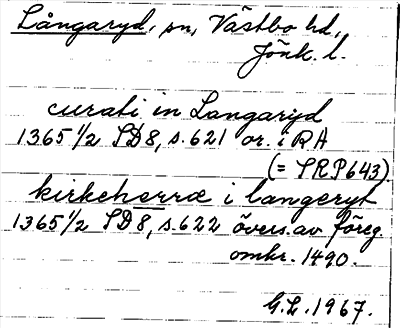 Långaryd, sn, Västbo hd,
Jönk. l.
curati in Langaryd
1365 1/2 SD8, s. 621 or. i RA
(= SRP 643)
kirkeherræ i langeryt
1365 1/2 SD 8, s. 622 övers. av föreg.
omkr. 1490.
G.L. 1967.